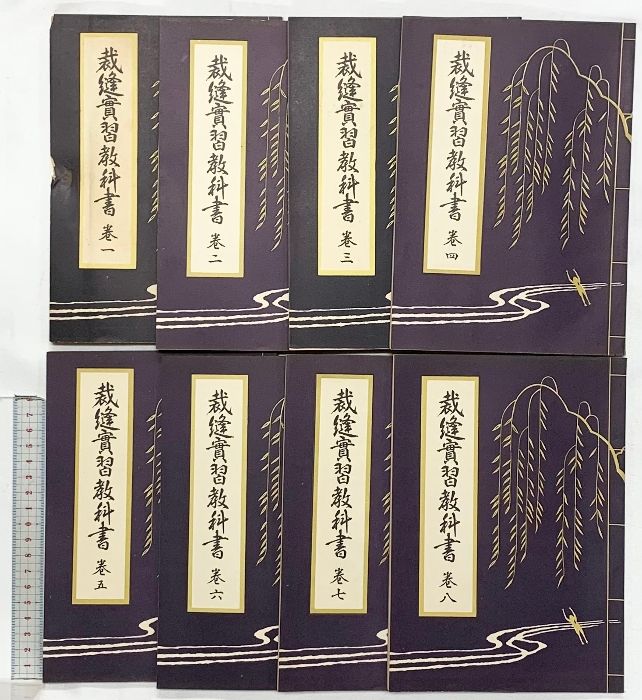 裁縫實習教科書 卷一
裁縫實習教科書 卷二
裁縫實習教科書 卷三
裁縫實習教科書 卷四
裁縫實習教科書 卷五
裁縫實習教科書 卷六
裁縫實習教科書 卷七
裁縫實習教科書 卷八